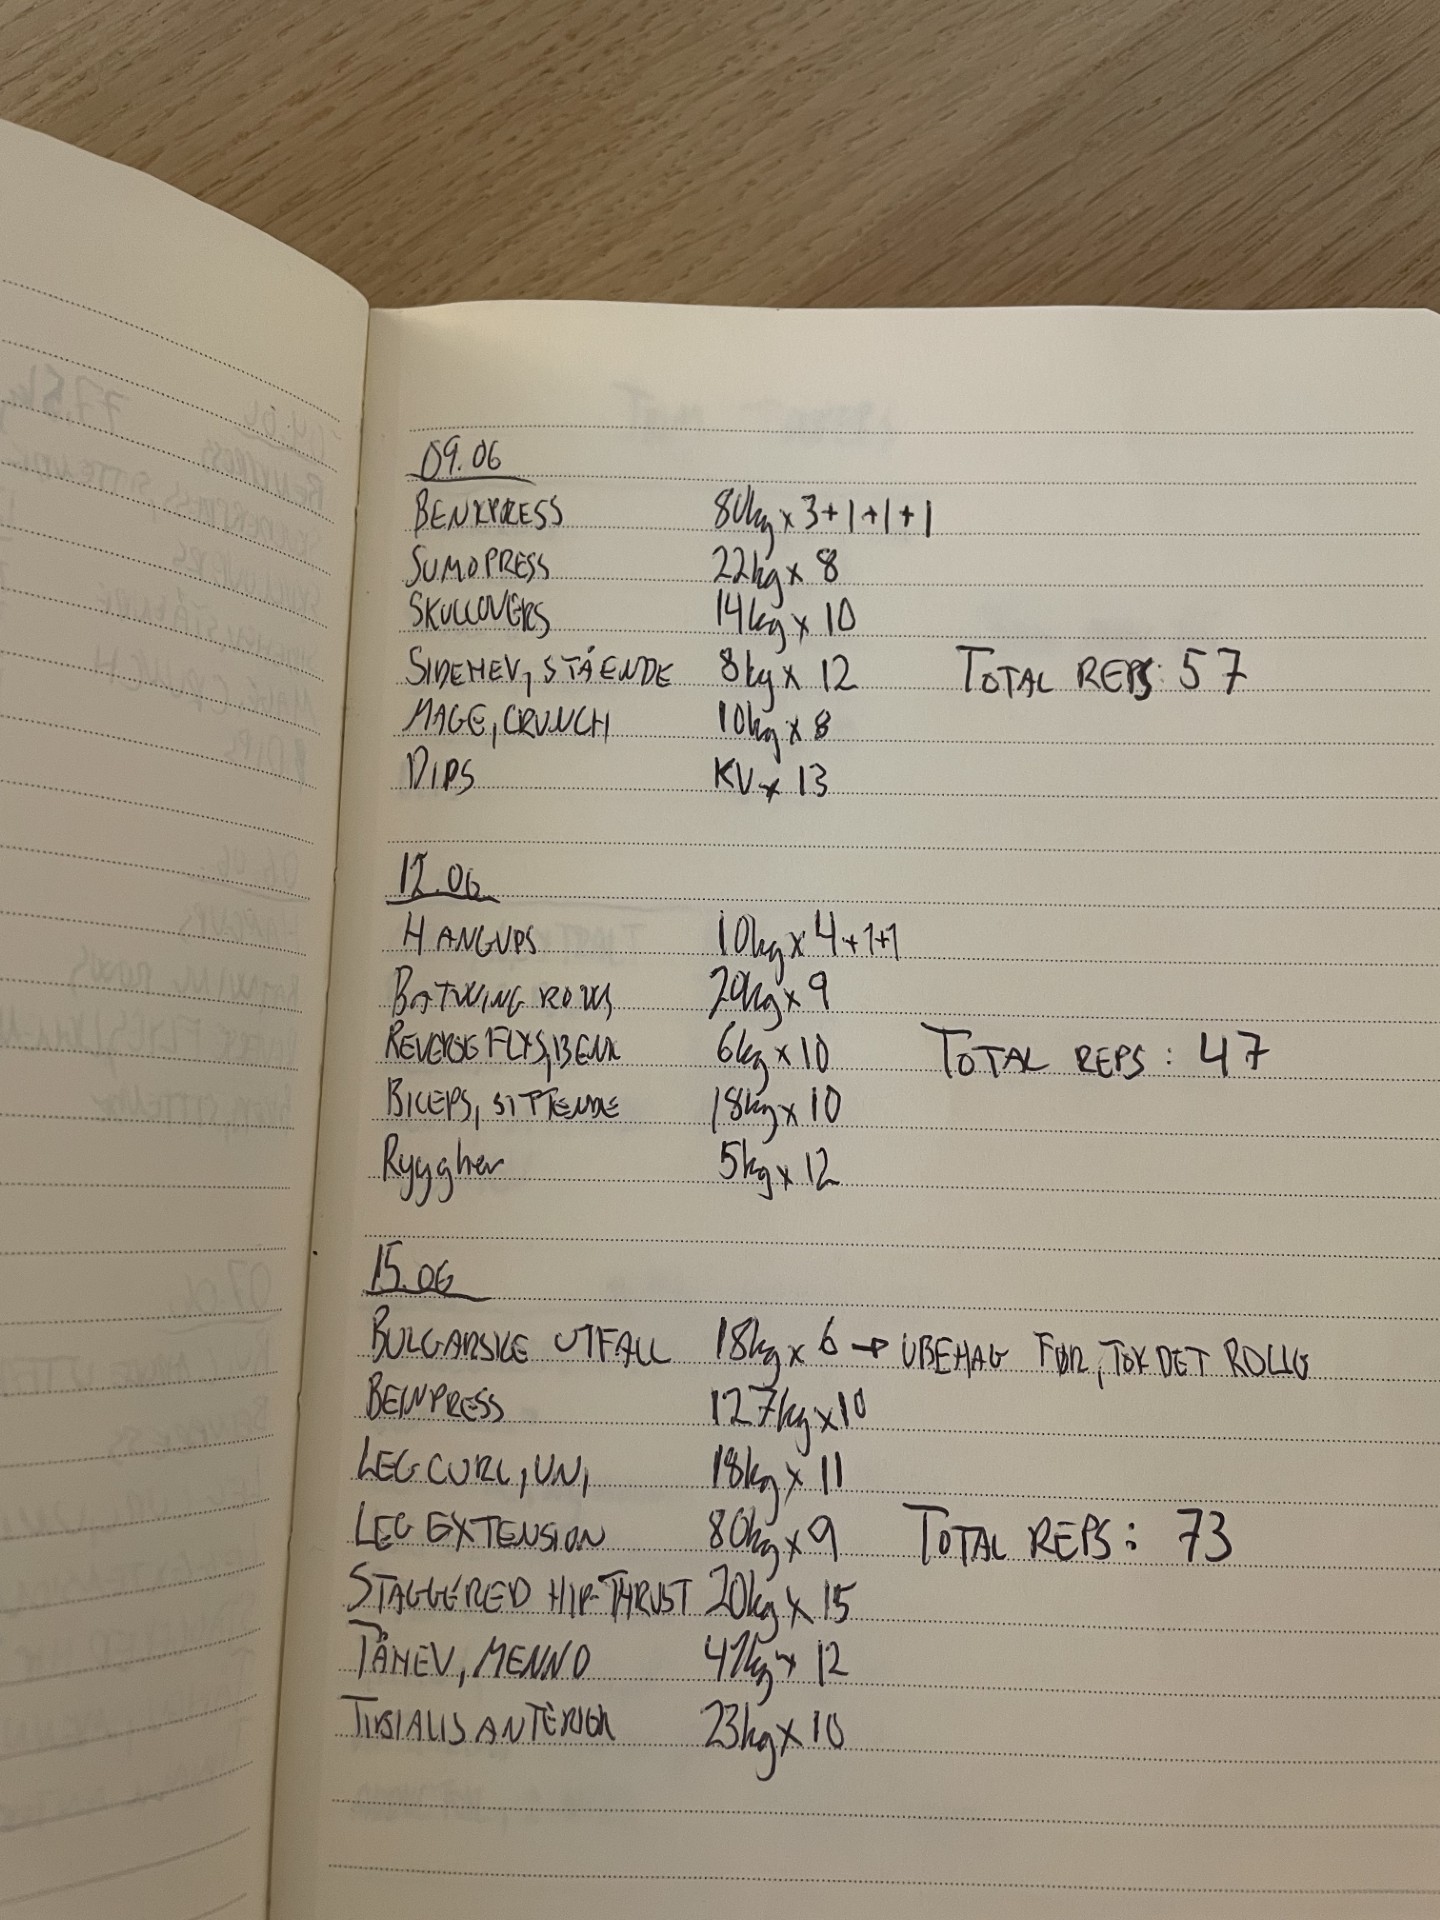 09.06
BENKPRESS 80kg x 3+1+1+1
SUMOPRESS 22kg x 8
SKULLOVERS 14kg x 10
SIDEHEV, STÅENDE 8kg x 12 TOTAL REPS: 57
MAGE, CRUNCH 10kg x 8
DIPS KV x 13
12.06
HANGUPS 10kg x 4+1+1
BATWING ROWS 20kg x 9
REVERSE FLYS, BENK 6kg x 10 TOTAL REPS: 47
BICEPS, SITTENDE 18kg x 10
Rygghev 5kg x 12
15.06
BULGARSKE UTFALL 18kg x 6 → UBEHAG FØR, TOK DET ROLIG
BEINPRESS 127kg x 10
LEG CURL, UNI, 18kg x 11
LEG EXTENSION 80kg x 9 TOTAL REPS: 73
STAGGERED HIP-THRUST 20kg x 15
TÅHEV, MENNO x 12
TIBIALIS ANTERIOR 23kg x 10